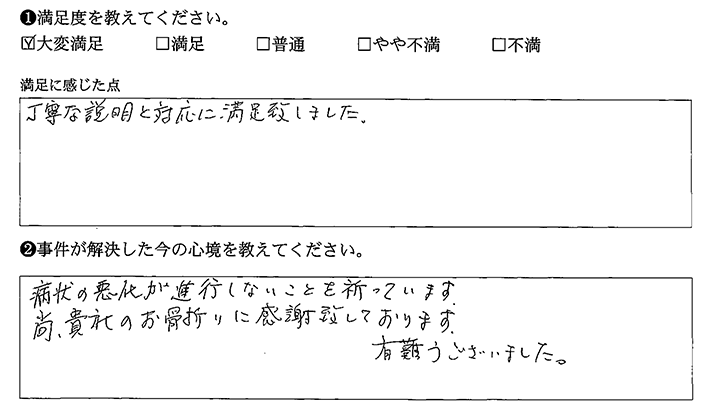 ❶満足度を教えてください。
☑大変満足 □満足 □普通 □やや不満 □不満
満足に感じた点
丁寧な説明と対応に満足致しました.
❷事件が解決した今の心境を教えてください。
病状の悪化が進行しないことを祈っています.
尚、貴社のお骨折りに感謝致しております.
有難うございました。